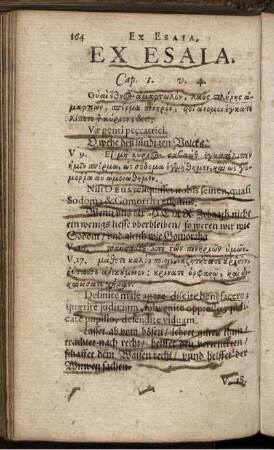 164 EX ESAIA.
EX ESAIA.
Cap. 1. v. 4.
λαὸς πλήρης
σπέρμα πονηρὸν,
Væ genti peccatrici.
O wehe deß sündigen Volcks.
V 9. Εἰ μὴ κύριος σαβαὼθ ἐγκατέλιπεν
ἡμῖν σπέρμα, ὡς σόδομα ἐγενήθημεν, καὶ ὡς γό-
μορρα ἂν ὡμοιώθημεν.
Nisi DEUS reliquisset nobis semen, quasi
Sodoma & Gomorrha
Wenn uns der HERR Zebaoth nicht
ein wenigs liesse uberbleiben / so weren wir wie
Sodom / und gleich wie Gomorrha
ἀπὸ τῶν πονηριῶν ὑμῶν.
V. 17. μάθετε καλὸν ποιεῖν,
κρίνατε ὀρφανῷ, καὶ δι-
καιώσατε χήραν.
Definite male agere, discite benefacere:
quærite judicium, subvenite oppresso, judi-
cate pupillo, defendite viduam.
Lasset ab vom bösen / lehret gutes thun /
trachtet nach recht / helffet den
schaffet dem Waisen recht / und helffet der
Witwen sachen.
V. 18.